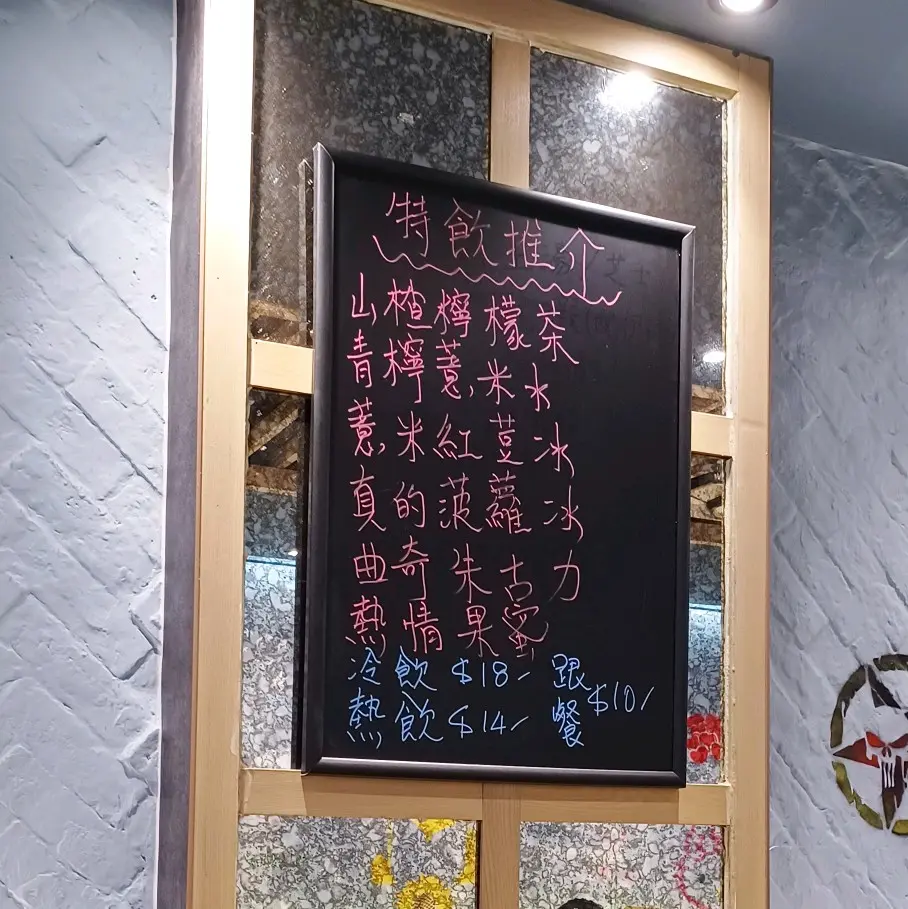 特飲推介
山楂檸檬茶
青檸薏米水
薏米紅荳冰
真的菠蘿冰
曲奇朱古力
熱情果蜜
冷飲 $18/
熱飲 $14/
跟餐 $10/